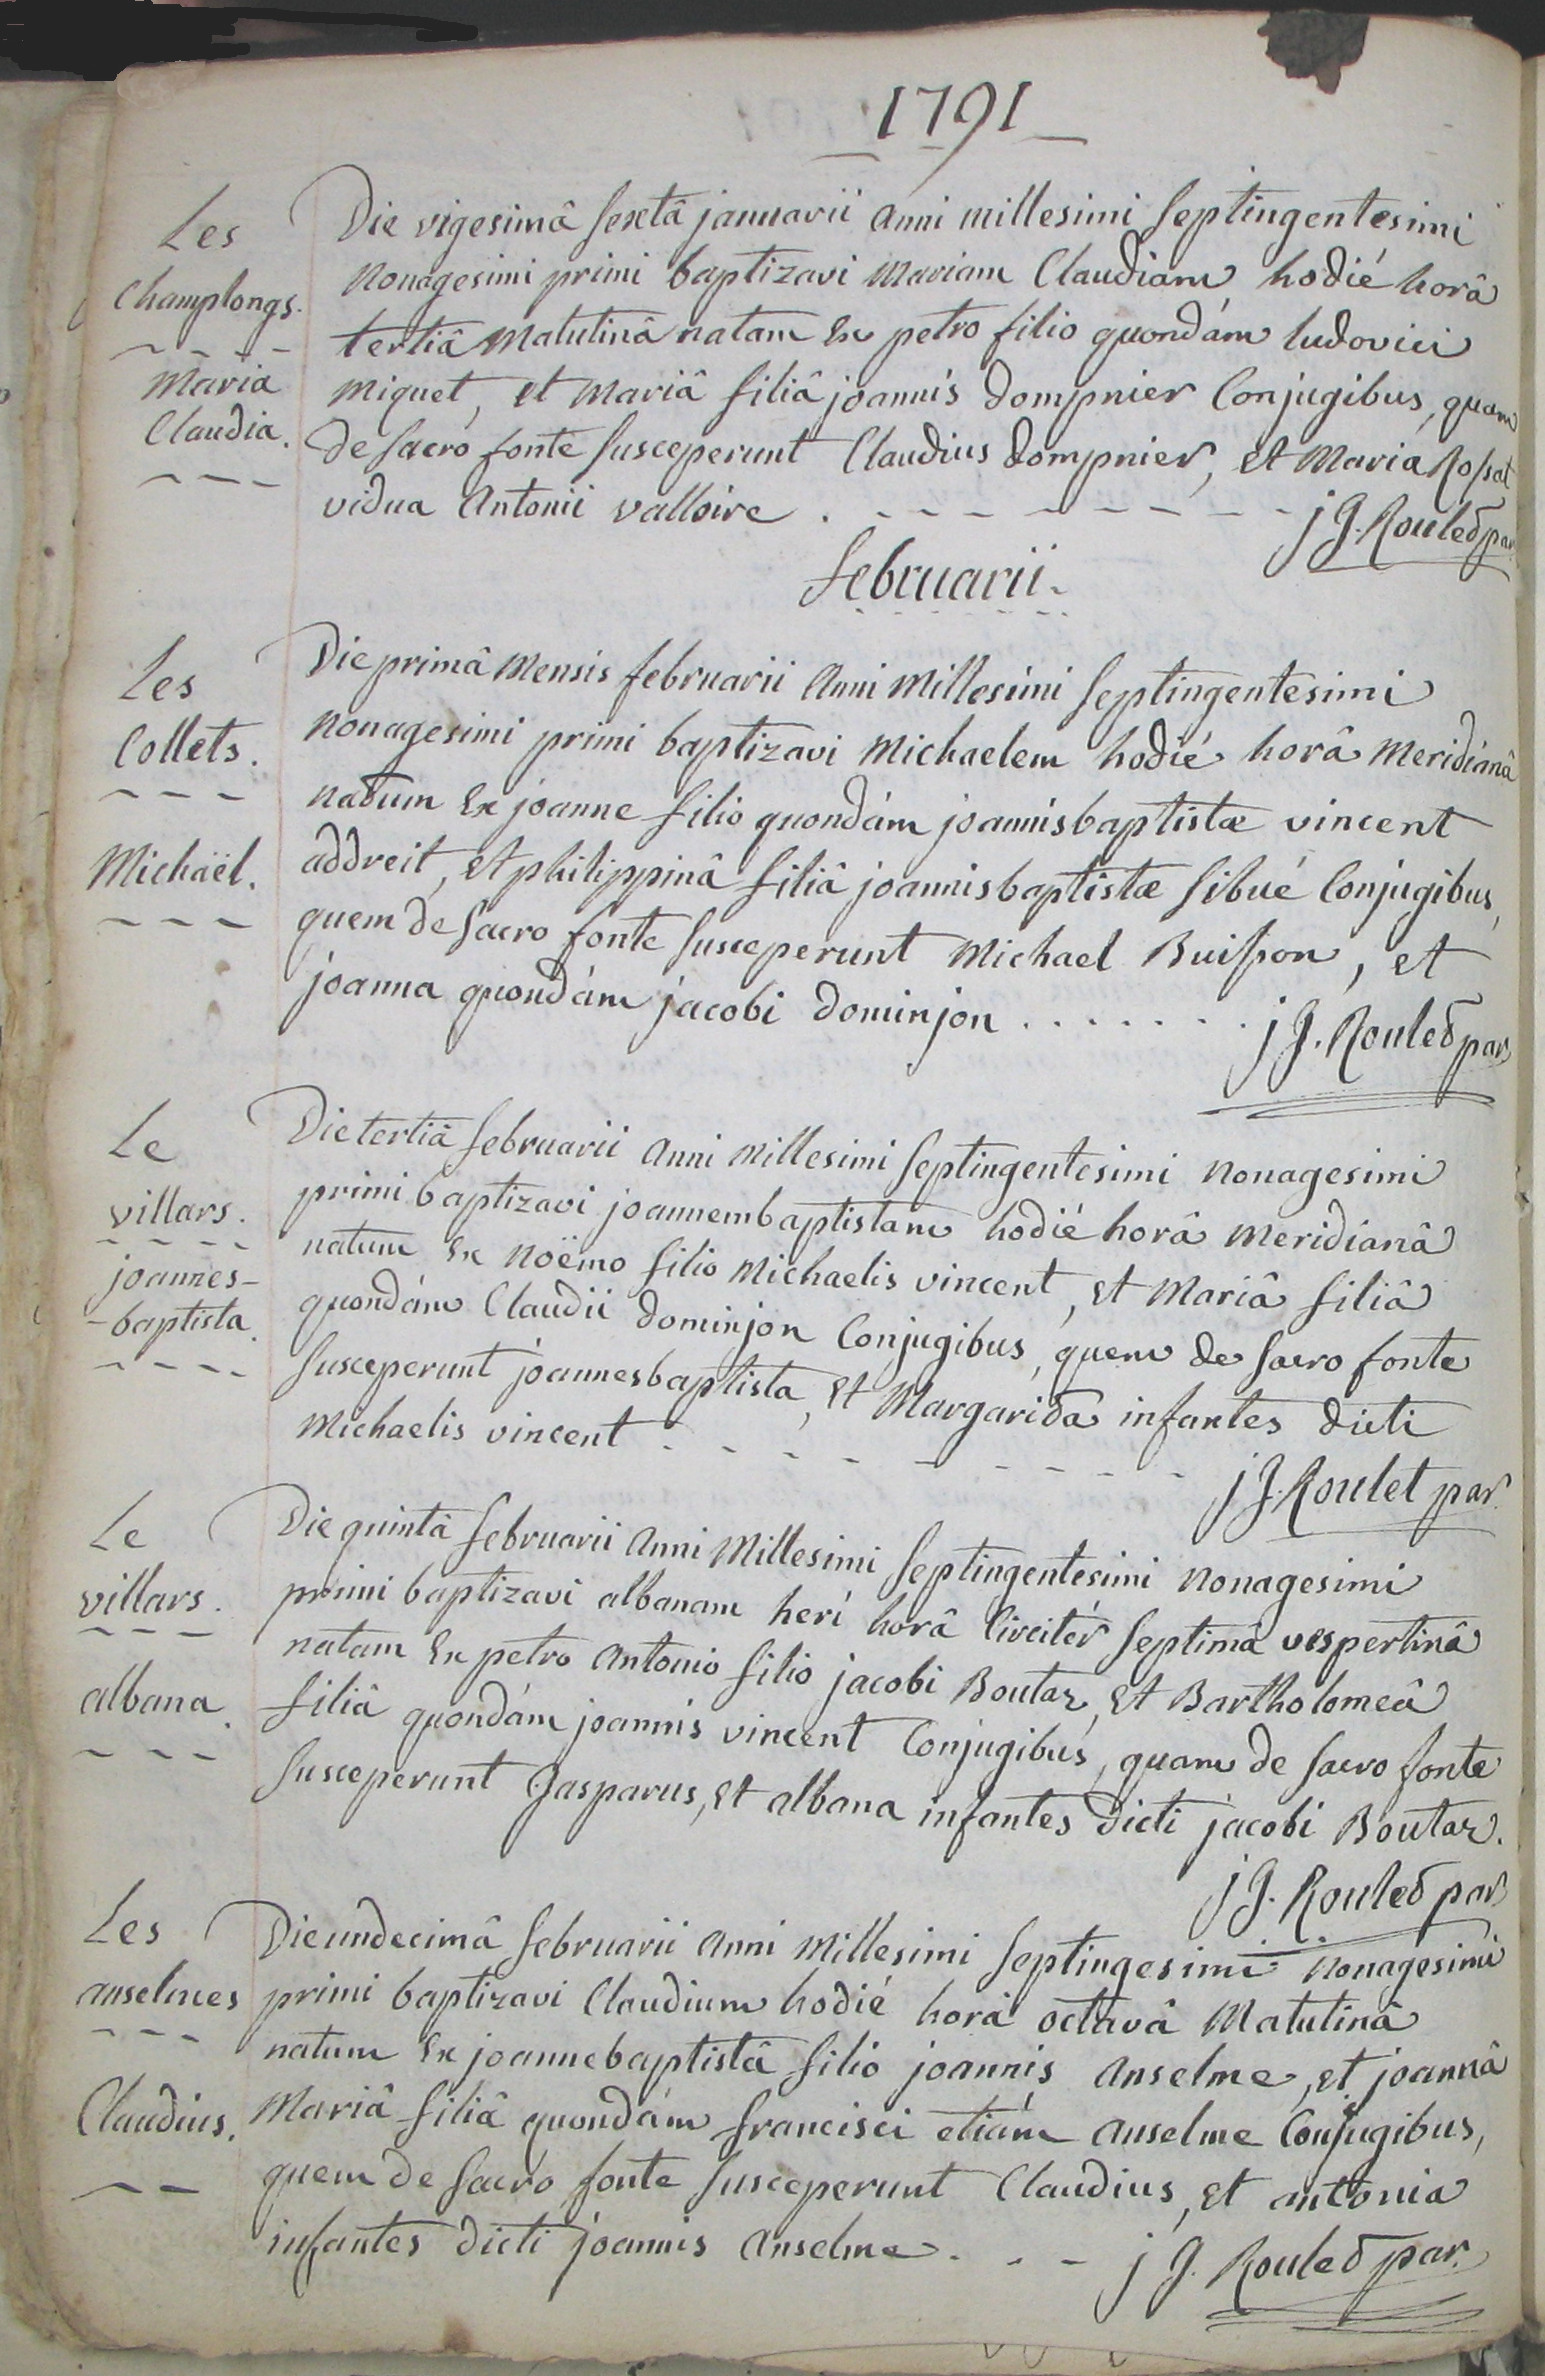 1791
Les
Champlongs.
Maria
Claudia.
Die vigesimâ sextâ januarii anni millesimi septingentesimi
nonagesimi primi baptizavi mariam Claudiam hodié horâ
tertiâ matutinâ natam ex petro filio quondám ludovici
miquet, et mariâ filiâ joannis dompnier Conjugibus, quam
de sacro fonte susceperunt Claudius dompnier, et maria Rossat
vidua antonii valloire.
j J. Rouled par.
februarii.
Les
Collets.
Michaël.
Die primâ mensis februarii anni millesimi septingentesimi
nonagesimi primi baptizavi michaelem hodié horâ meridianâ
natum ex joanne filio quondám joannisbaptistæ vincent
addreit, et philippinâ filiâ joannisbaptistæ sibué Conjugibus,
quem de sacro fonte susceperunt michael Buisson, et
joanna quondám jacobi dominjon . . . . . . .
j J. Rouled par.
Le
villars.
joannes-
-baptista.
Die tertiâ februarii anni millesimi septingentesimi nonagesimi
primi baptizavi joannembaptistam hodié horâ meridianâ
natum ex noëmo filio michaelis vincent, et mariâ filiâ
quondám Claudii dominjon Conjugibus, quem de sacro fonte
susceperunt joannesbaptista, et margarida infantes dicti
michaelis vincent
j J. Roulet par.
Le
villars.
albana.
Die quintâ februarii anni millesimi septingentesimi nonagesimi
primi baptizavi albanam heri horâ circitér septimâ vespertinâ
natam ex petro antonio filio jacobi Boutaz, et Bartholomeâ
filiâ quondám joannis vincent Conjugibus, quam de sacro fonte
susceperunt gasparus, et albana infantes dicti jacobi Boutaz.
j J. Rouled par.
Les
anselmes
Claudius.
Die undecimâ februarii anni millesimi septingesimi nonagesimi
primi baptizavi Claudium hodié horâ octavâ matutinâ
natum ex joannebaptistâ filio joannis anselme, et joannâ
mariâ filiâ quondám francisci etiám anselme Conjugibus,
quem de sacro fonte susceperunt Claudius, et antonia
infantes dicti joannis anselme.
j J. Rouled par.